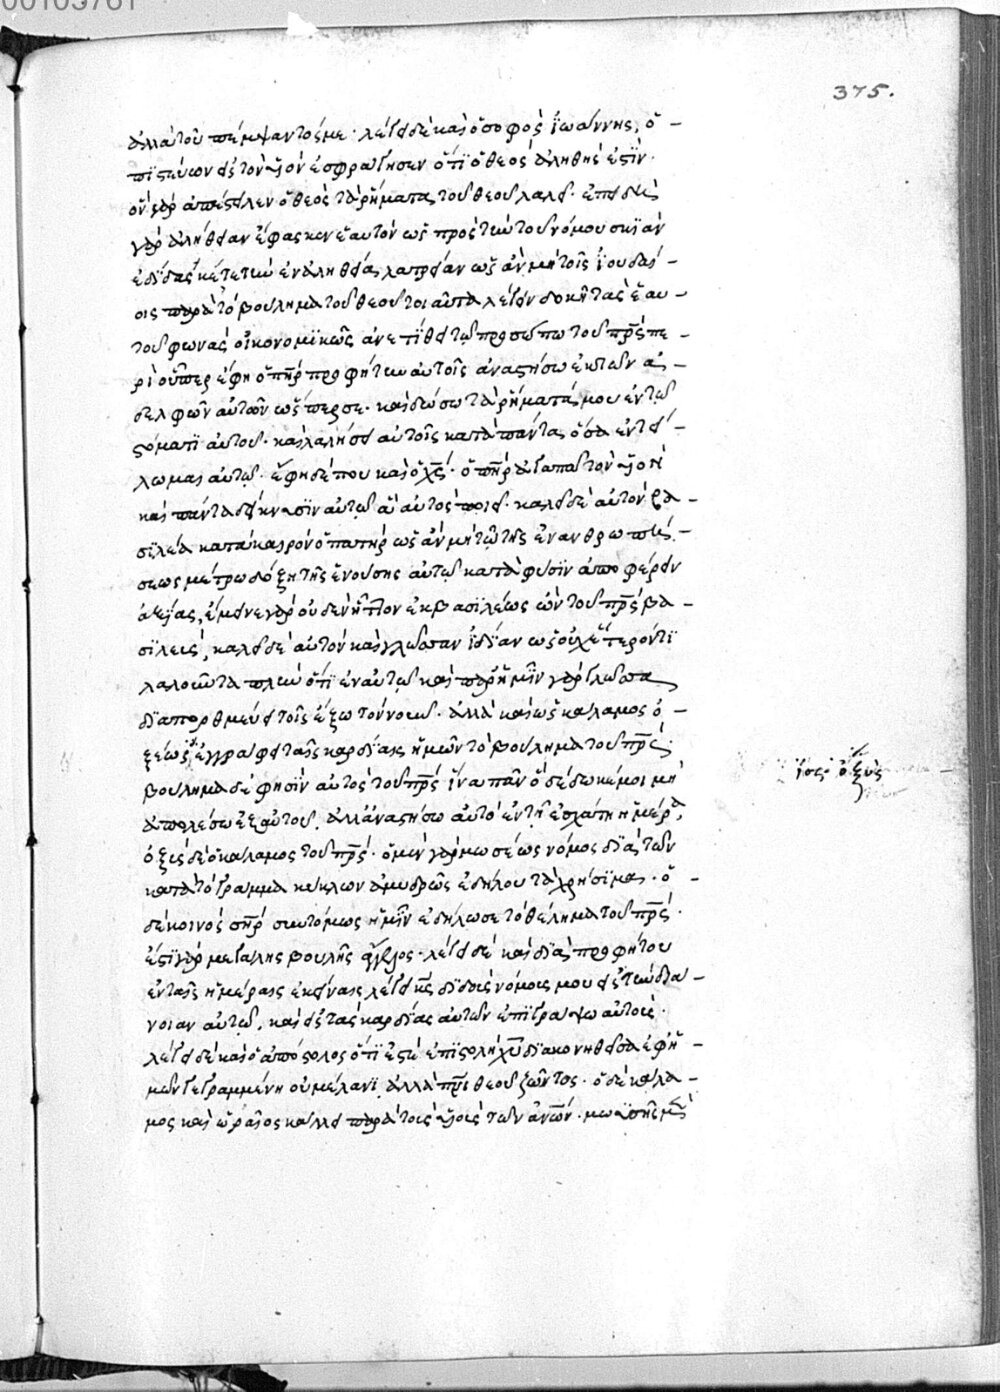 375.
ἀλλὰ τοῦ πέμψαντός με· λέγει δὲ καὶ ὁ σοφὸς ἰωάννης, ὁ
πιστεύων εἰς τὸν υἱὸν ἐσφράγισεν ὅτι ὁ θεὸς ἀληθής ἐστιν·
ὃν γὰρ ἀπέστειλεν ὁ θεὸς τὰ ῥήματα τοῦ θεοῦ λαλεῖ· ἐπειδὴ
γὰρ ἀλήθειαν ἔφασκεν ἑαυτὸν ὡς πρὸς τὴν τοῦ νόμου σκιὰν
ἐδίδασκέ τε τὴν ἐν ἀληθείᾳ λατρείαν ὡς ἂν μὴ τοῖς ἰουδαί
οις παρὰ τὸ βούλημα τοῦ θεοῦ τοιαῦτα λέγειν δοκῇ τὰς ἑαυ
τοῦ φωνὰς οἰκονομικῶς ἀνετίθει τῷ προσώπῳ τοῦ πρς πε
ρὶ οὗπερ ἔφη ὁ πηρ προφήτην αὐτοῖς ἀναστήσω ἐκ τῶν ἀ
δελφῶν αὐτῶν ὥσπερ σε· καὶ δώσω τὰ ῥήματά μου ἐν τῷ
στόματι αὐτοῦ· καὶ λαλήσει αὐτοῖς κατὰ πάντα ὅσα ἐντεί
λωμαι αὐτῷ· ἔφη δέ που καὶ ὁ χς· ὁ πηρ ἀγαπᾷ τὸν υἱὸν
καὶ πάντα δείκνυσιν αὐτῷ ἃ αὐτὸς ποιεῖ· καλεῖ δὲ αὐτὸν βα
σιλέα κατὰ καιρὸν ὁ πατὴρ ὡς ἂν μὴ τῷ τῆς ἐνανθρωπή
σεως μέτρῳ δόξῃ τῆς ἐνούσης αὐτῷ κατὰ φύσιν ἀποφέρειν
ἀξίας, ἔμεινε γὰρ οὐδὲν ἧττον ἐκ βασιλέως ὢν τοῦ πρς βα
σιλεὺς, καλεῖ δὲ αὐτὸν καὶ γλῶσσαν ἰδίαν ὡς οὐχ ἕτερόν τι
λαλοῦντα πλὴν ὅτι ἐν αὐτῷ καὶ παρ' ἡμῖν γὰρ γλῶσσα
διαπορθμεύει τοῖς ἔξω τὸν νοῦν· ἀλλὰ καὶ ὡς κάλαμος ὁ
ξέως ἐγγράφει ταῖς καρδίαις ἡμῶν τὸ βούλημα τοῦ πρς·
βούλημα δέ φησιν αὐτὸς τοῦ πρς ἵνα πᾶν ὃ δέδωκέ μοι μὴ
ἀπολέσω ἐξ αὐτοῦ. ἀλλ' ἀναστήσω αὐτὸ ἐν τῇ ἐσχάτῃ ἡμέρᾳ,
ὀξὺς δὲ ὁ κάλαμος τοῦ πρς· ὁ μὲν γὰρ μωσέως νόμος διὰ τῶν
κατὰ τὸ γράμμα κύκλων ἀμυδρῶς ἐδήλου τὰ χρήσιμα· ὁ
δὲ κοινὸς σηρ συντόμως ἡμῖν ἐδήλωσε τὸ θέλημα τοῦ πρς·
ἔστι γὰρ μεγάλης βουλῆς ἄγγελος· λέγει δὲ καὶ διὰ προφήτου
ἐν ταῖς ἡμέραις ἐκείναις λέγει κς διδοὺς νόμους μου εἰς τὴν διά
νοιαν αὐτῶν, καὶ εἰς τὰς καρδίας αὐτῶν ἐπιγράψω αὐτούς·
λέγει δὲ καὶ ὁ ἀπόστολος ὅτι ἐστὲ ἐπιστολὴ χυ διακονηθεῖσα ἐφ' ἡ
μῶν γεγραμμένη οὐ μέλανι ἀλλὰ πνι θεοῦ ζῶντος· ὁ δὲ κάλα
μος καὶ ὡραῖος κάλλει παρὰ τοὺς υἱοὺς τῶν ἀνων· μωυσῆς μὲν
ἴσως ὀξὺς